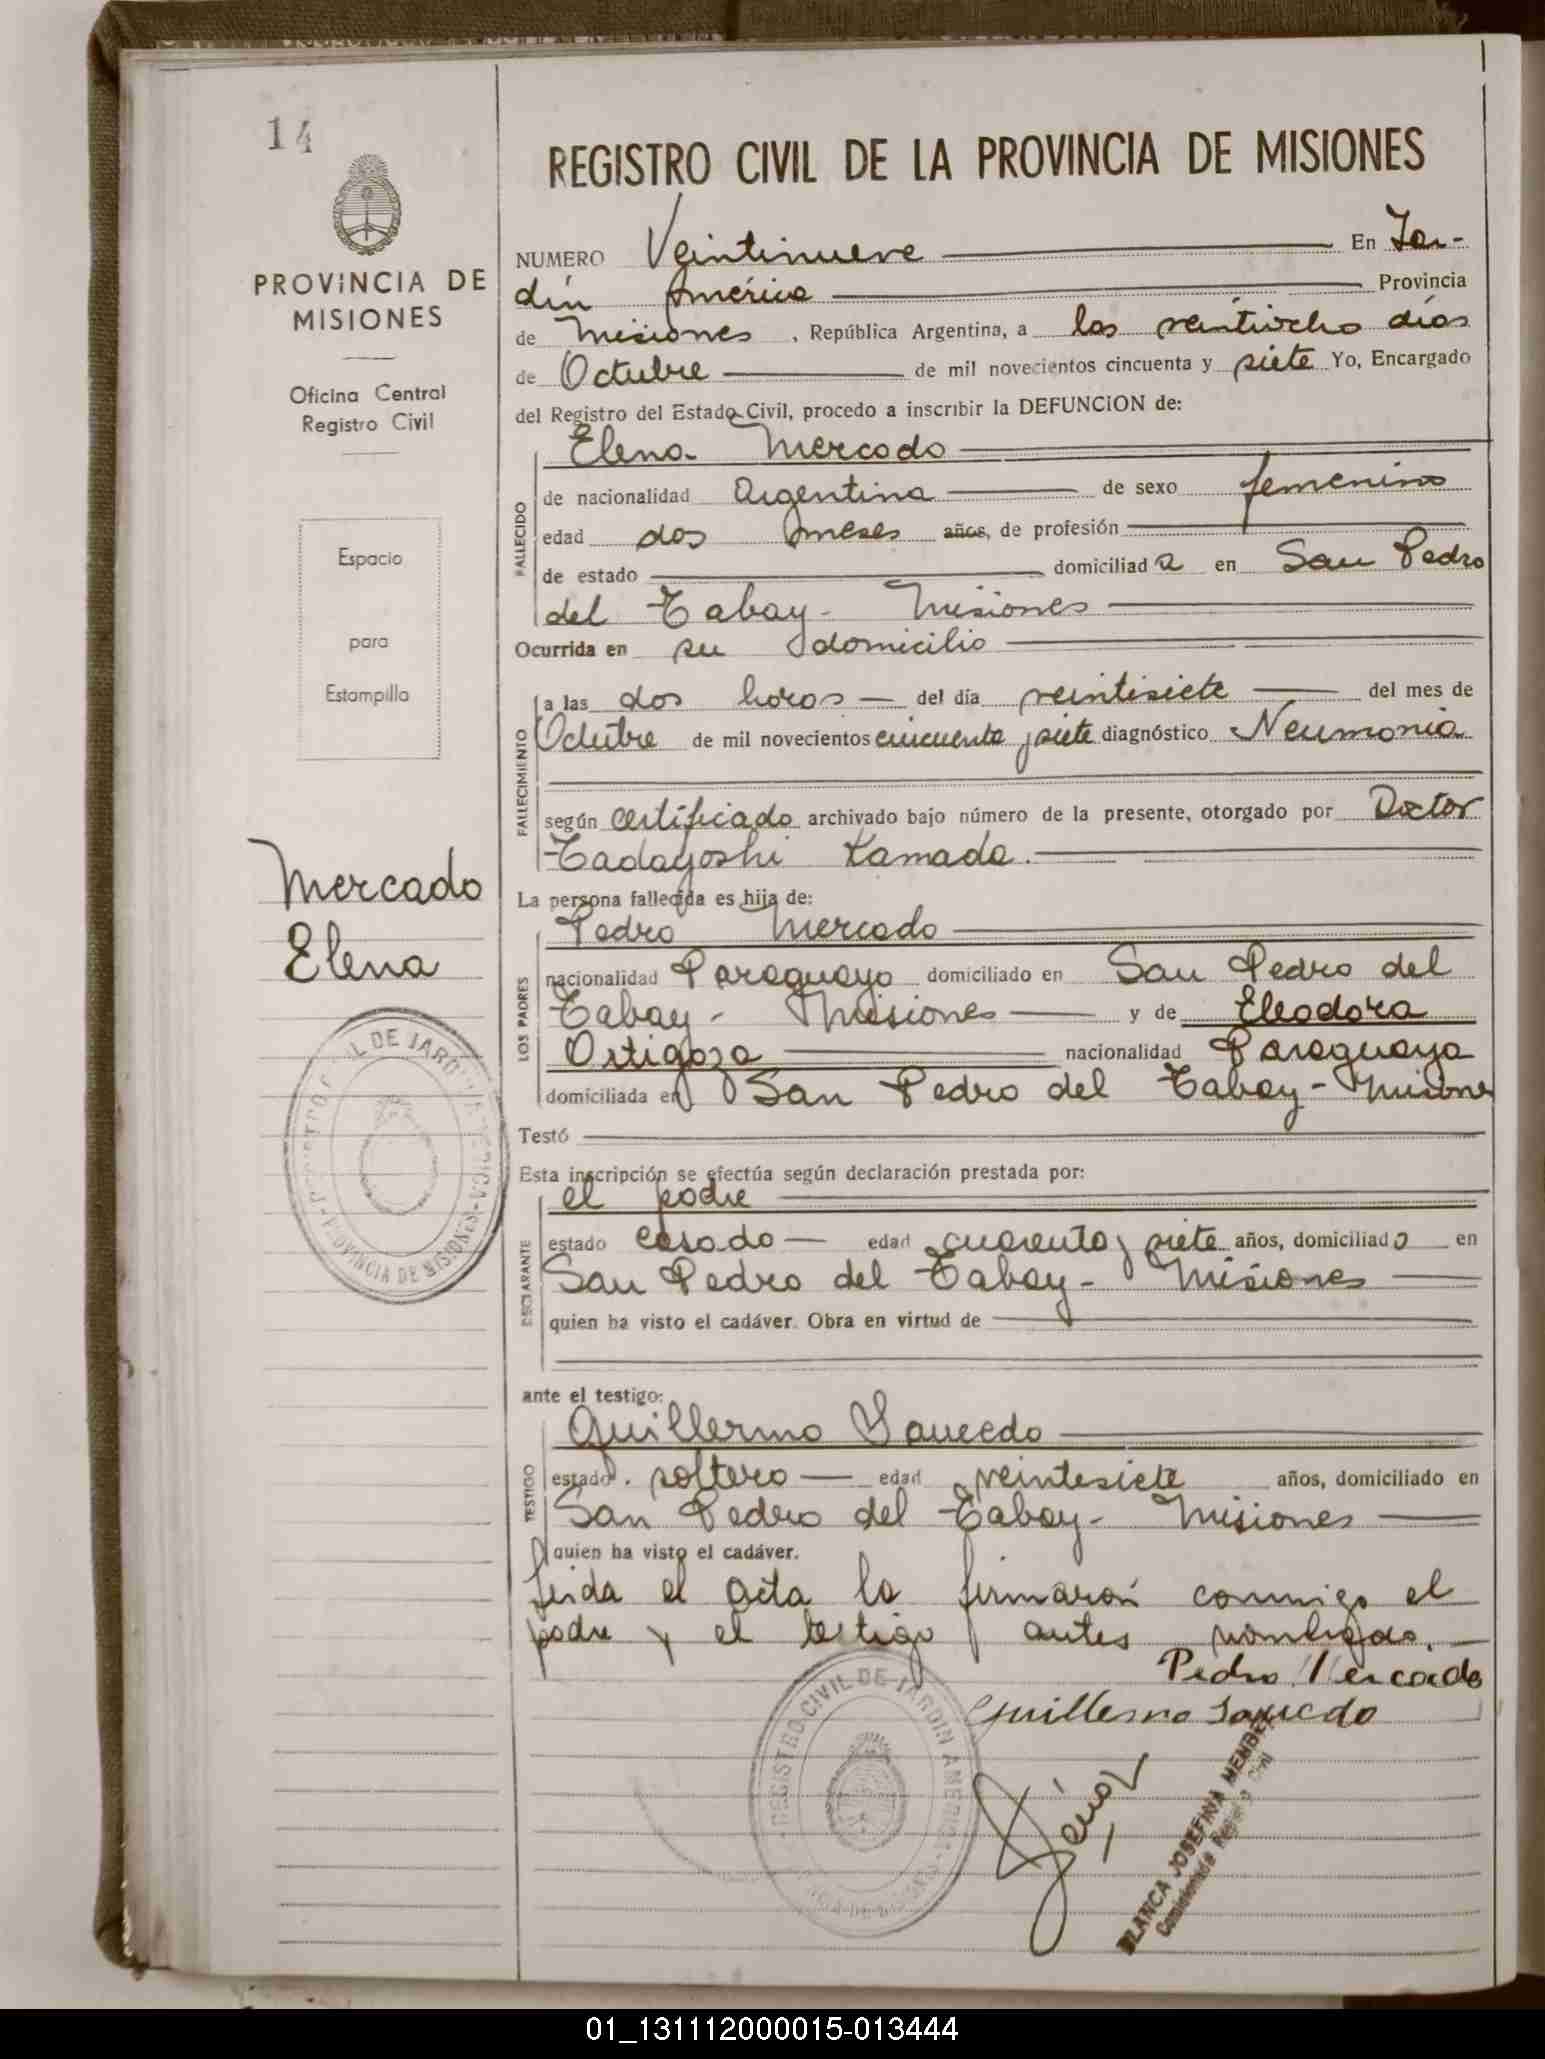 14
PROVINCIA DE
MISIONES
Oficina Central
Registro Civil
Espacio
para
Estampilla
Mercado
Elena
REGISTRO CIVIL DE LA PROVINCIA DE MISIONES
NUMERO Veintinueve En Jar-
dín América Provincia
de Misiones, República Argentina, a los veintiocho días
de Octubre de mil novecientos cincuenta y siete Yo, Encargado
del Registro del Estado Civil, procedo a inscribir la DEFUNCION de:
FALLECIDO
Elena Mercado
de nacionalidad Argentina de sexo femenino
edad dos meses años, de profesión
de estado domiciliada en San Pedro
del Tabay - Misiones
Ocurrida en su domicilio
FALLECIMIENTO
a las dos horas del día veintisiete del mes de
Octubre de mil novecientos cincuenta y siete diagnóstico Neumonia
según certificado archivado bajo número de la presente, otorgado por Doctor
Tadayoshi Kamada.
La persona fallecida es hija de:
LOS PADRES
Pedro Mercado
nacionalidad Paraguayo domiciliado en San Pedro del
Tabay - Misiones y de Eleodora
Ortigoza nacionalidad Paraguaya
domiciliada en San Pedro del Tabay - Misiones
Testó
Esta inscripción se efectúa según declaración prestada por:
DECLARANTE
el padre
estado casado edad cuarenta y siete años, domiciliado en
San Pedro del Tabay - Misiones
quien ha visto el cadáver. Obra en virtud de
ante el testigo:
TESTIGO
Guillermo Saucedo
estado soltero edad veintesiete años, domiciliado en
San Pedro del Tabay - Misiones
quien ha visto el cadáver.
Leida el acta la firmaron conmigo el
padre y el testigo antes nombrado.
Pedro Mercado
Guillermo Saucedo
REGISTRO CIVIL DE JARDIN AMERICA
PROVINCIA DE MISIONES
REGISTRO CIVIL DE JARDIN AMERICA
BLANCA JOSEFINA
Registro Civil
01_131112000015-013444